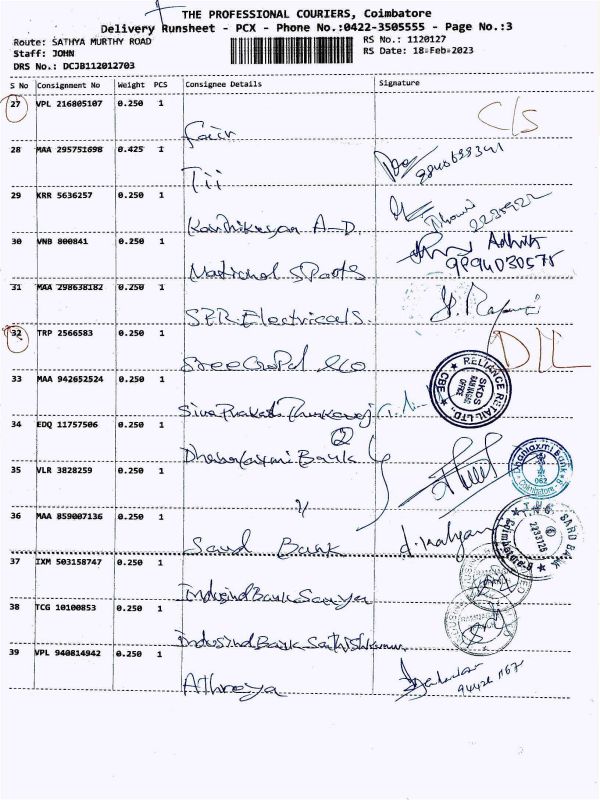 THE PROFESSIONAL COURIERS, Coimbatore
Delivery Runsheet - PCX - Phone No.:0422-3505555 - Page No.:3
Route: SATHYA MURTHY ROAD
RS No.: 1120127
Staff: JOHN
RS Date: 18-Feb-2023
DRS No.: DCJB112012703
S No Consignment No Weight PCS Consignee Details Signature
27 VPL 216805107 0.250 1
Fair C/S
28 MAA 295751698 0.425 1
Tii
29 KRR 5636257 0.250 1
Karthikeyan A-D.
30 VNB 800841 0.250 1 Adhith
National SParts 9994030575
31 MAA 298638182 0.250 1
S.P.R. Electricals.
32 TRP 2566583 0.250 1
33 MAA 942652524 0.250 1
RELIANCE RETAIL LTD., CBE
SKDS
OFFICE
34 EDQ 11757506 0.250 1
Dhanalaxmi Bank 2
Dhanlaxmi Bank
062
Coimbatore
35 VLR 3828259 0.250 1
36 MAA 859007136 0.250 1
Saud Bank
T.N.G. SARD BANK
Coimbatore
37 IXM 503158747 0.250 1
IndusindBank Sanya
38 TCG 10100853 0.250 1
IndusindBank Sathishkumar
39 VPL 940814942 0.250 1
Athreya